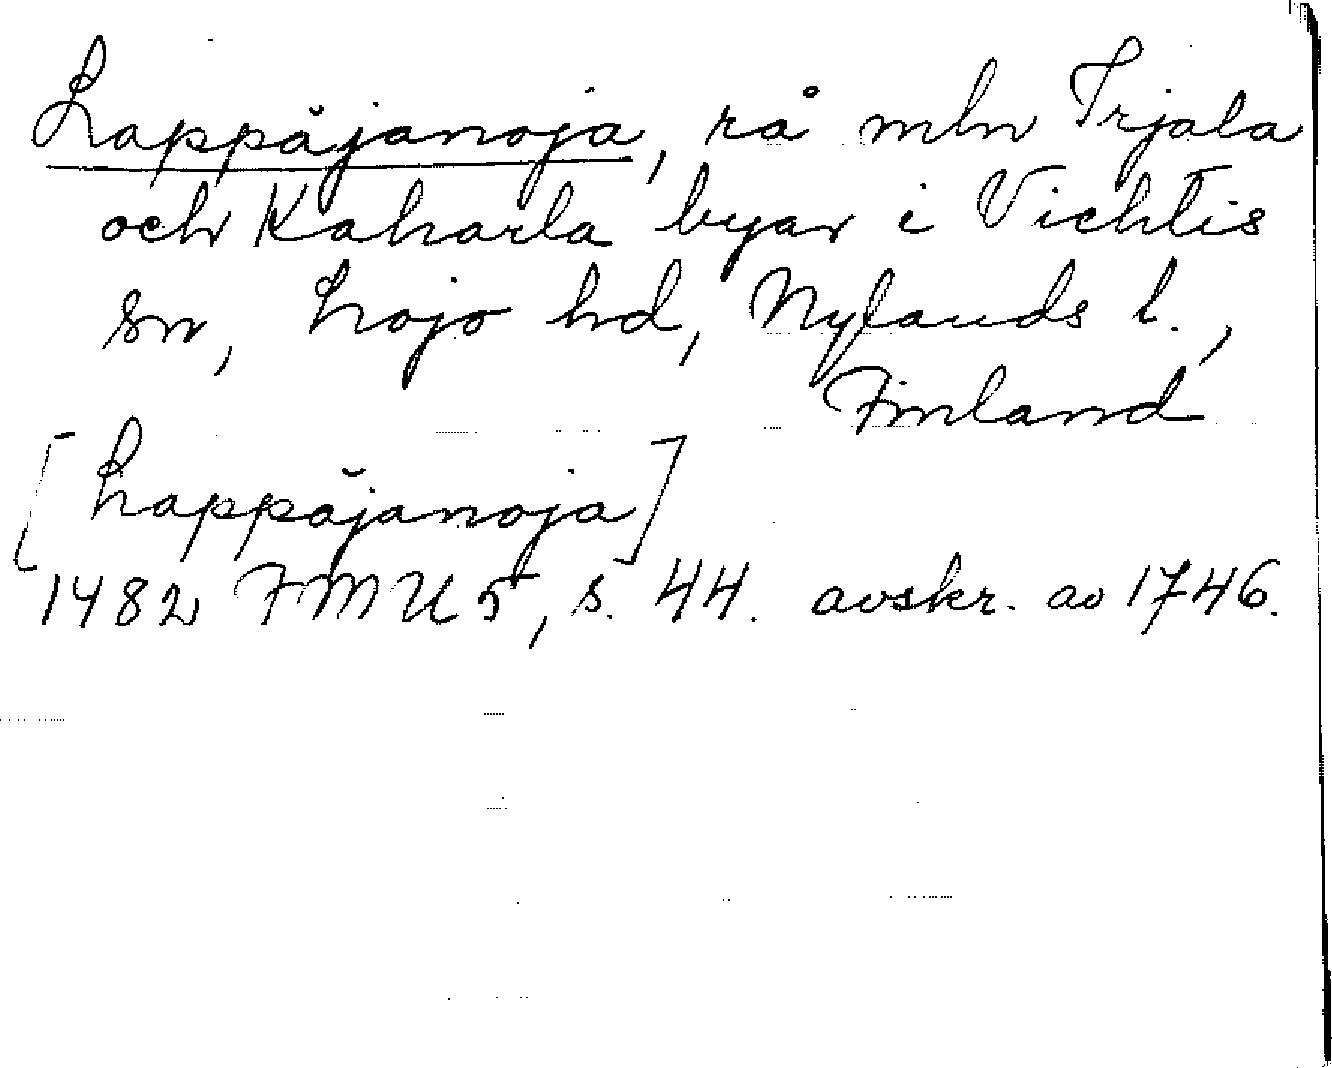 Lappăjanoja, rå mln Irjala
och Kaharla byar i Vichtis
sn, Lojo hd, Nylands l.,
Finland
[Lappăjanoja]
1482 FMU 5, s. 44. avskr. av 1746.